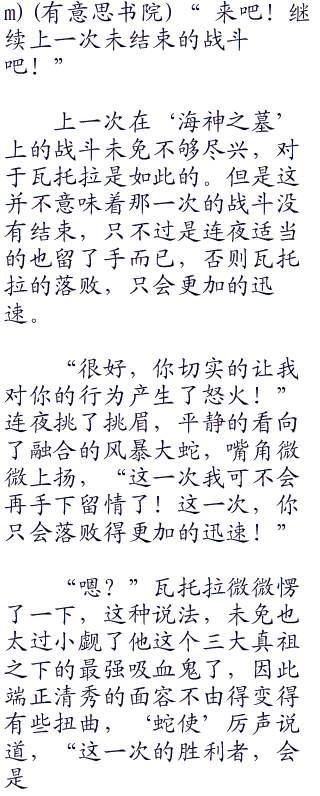 m) (有意思书院) “ 来吧！继
续上一次未结束的战斗
吧！”
上一次在‘海神之墓’
上的战斗未免不够尽兴，对
于瓦托拉是如此的。但是这
并不意味着那一次的战斗没
有结束，只不过是连夜适当
的也留了手而已，否则瓦托
拉的落败，只会更加的迅
速。
“很好，你切实的让我
对你的行为产生了怒火！”
连夜挑了挑眉，平静的看向
了融合的风暴大蛇，嘴角微
微上扬，“这一次我可不会
再手下留情了！这一次，你
只会落败得更加的迅速！”
“嗯？”瓦托拉微微愣
了一下，这种说法，未免也
太过小觑了他这个三大真祖
之下的最强吸血鬼了，因此
端正清秀的面容不由得变得
有些扭曲，‘蛇使’厉声说
道，“这一次的胜利者，会
是